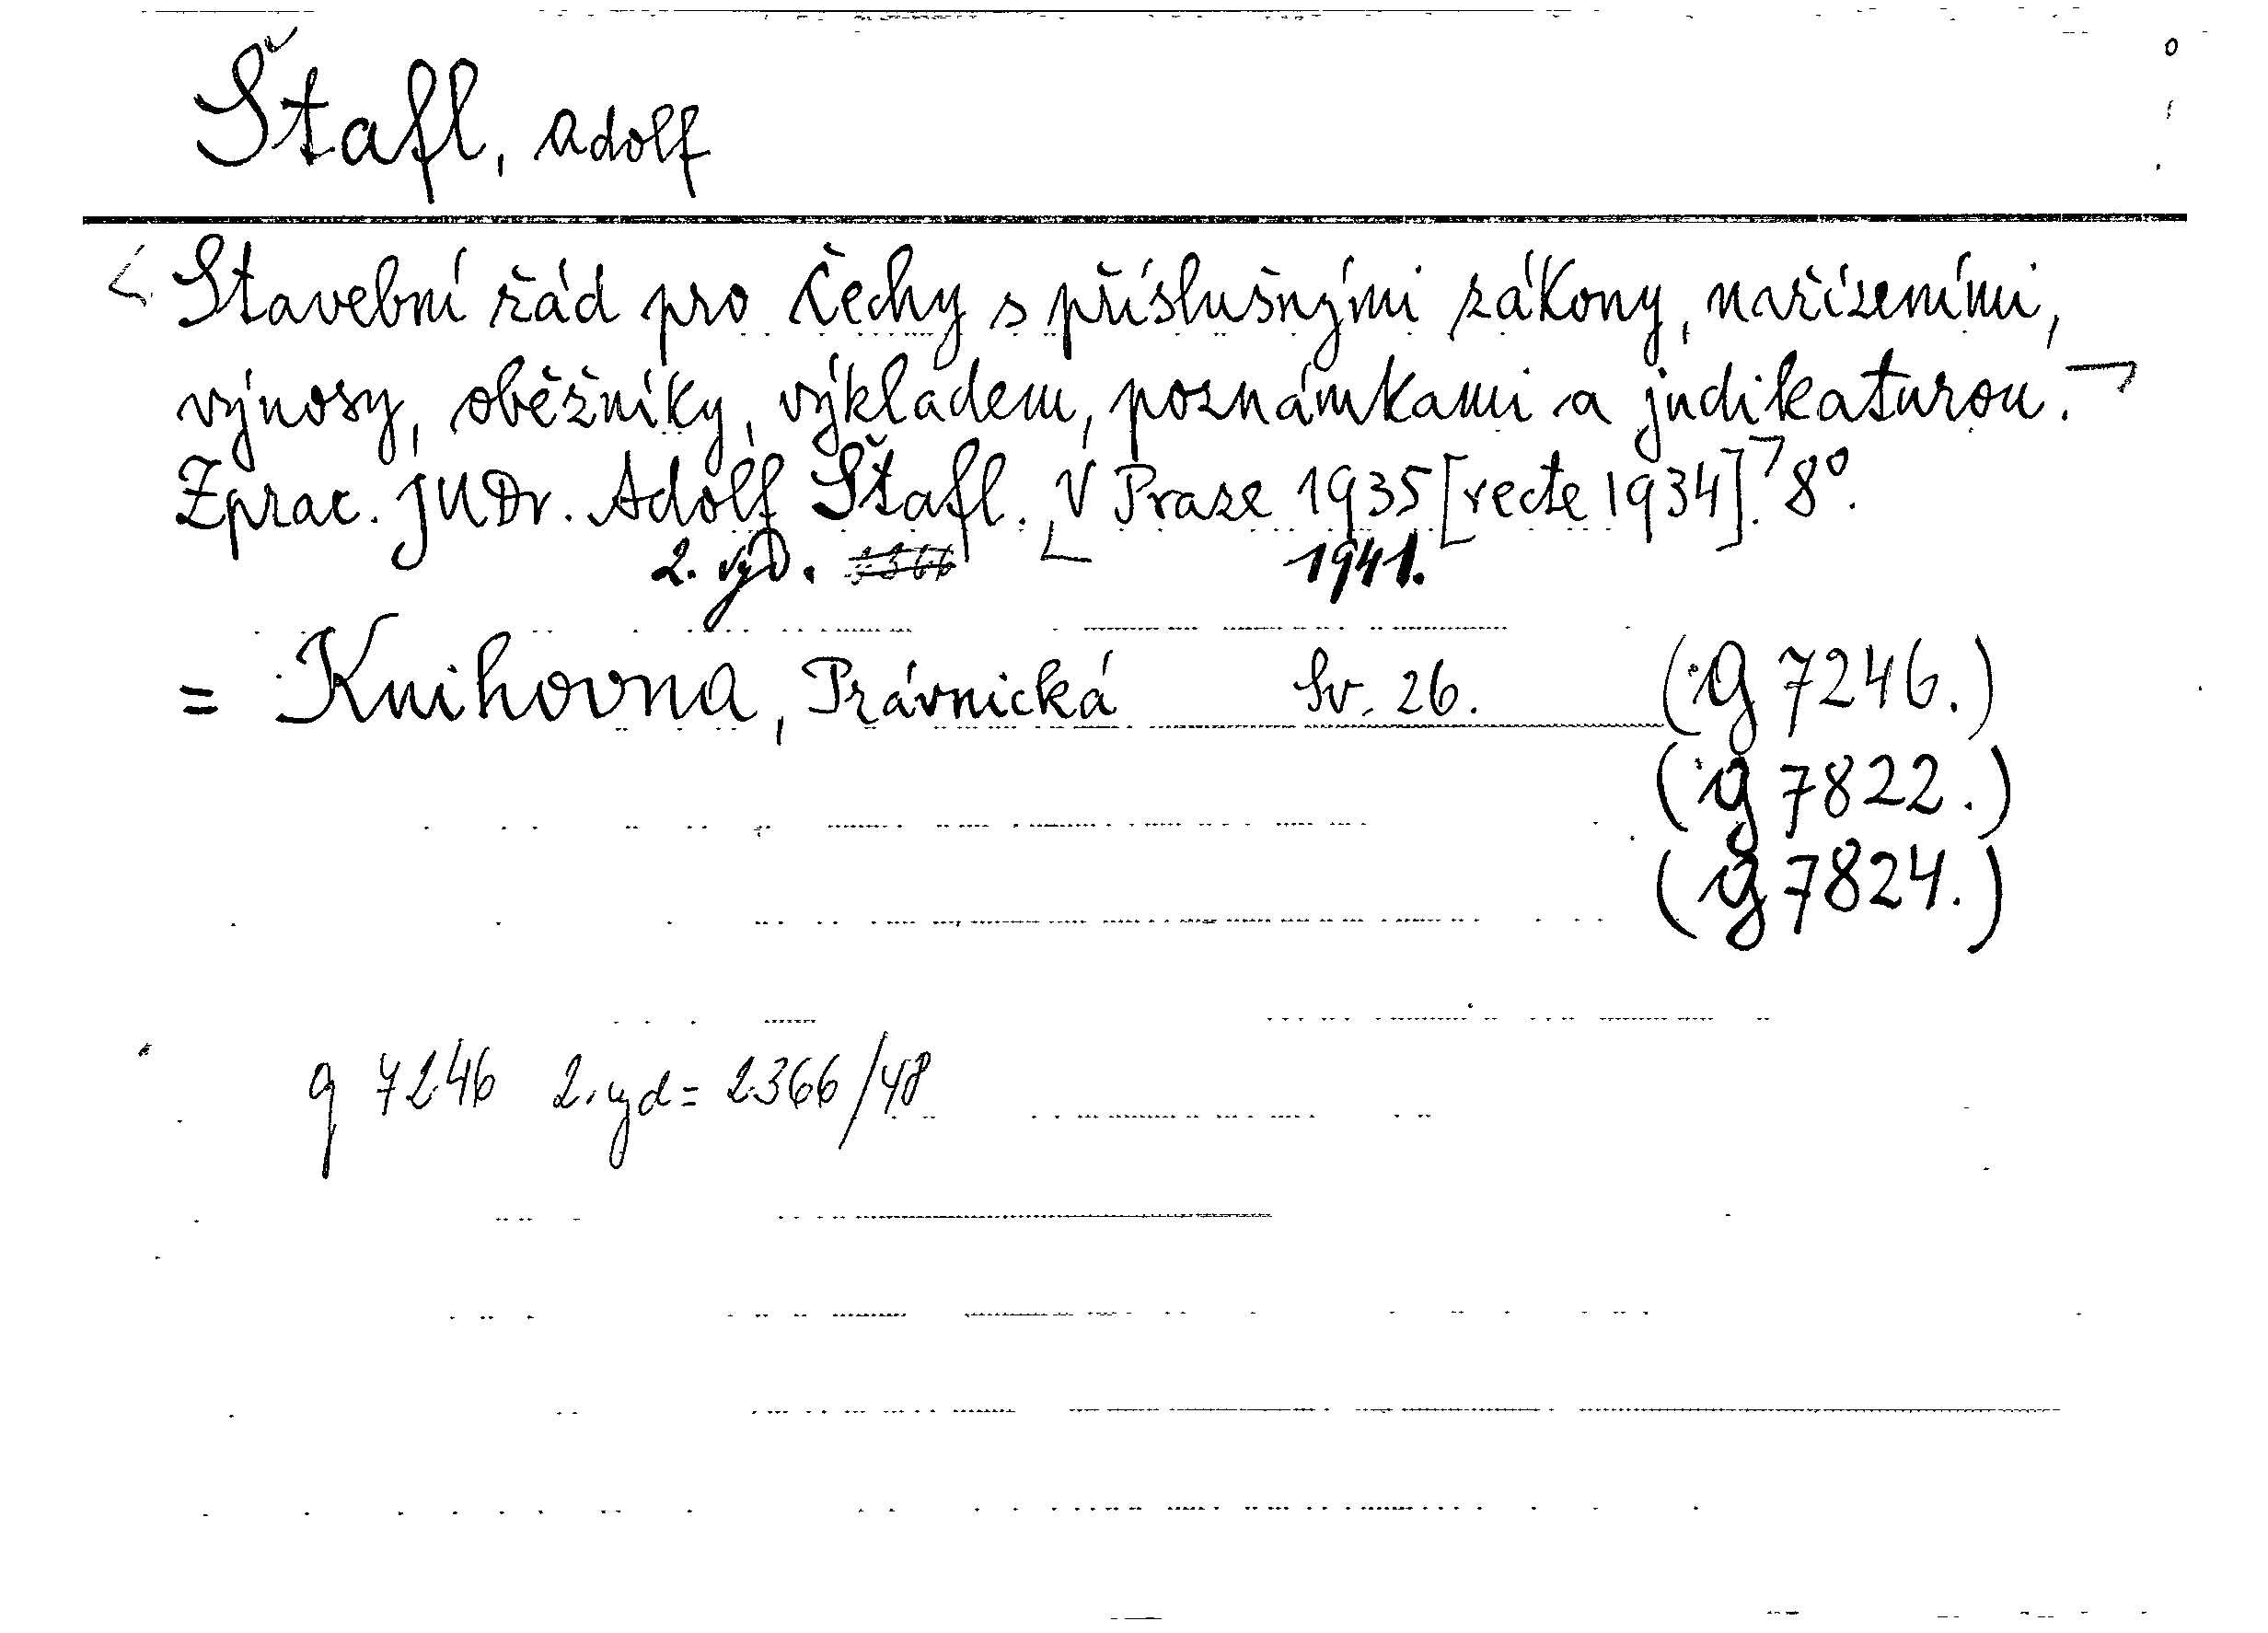 Štafl, Adolf
Stavební řád pro Čechy s příslušnými zákony, nařízeními,
výnosy, oběžníky, výkladem, poznámkami a judikaturou.
Zprac. JUDr. Adolf Štafl. V Praze 1935 [recte 1934]. 8°.
2. vyd. 2366 1941.
= Knihovna, Právnická Sv. 26. (g 7246.)
(g 7822.)
(g 7824.)
g 7246 2. vyd = 2366/48